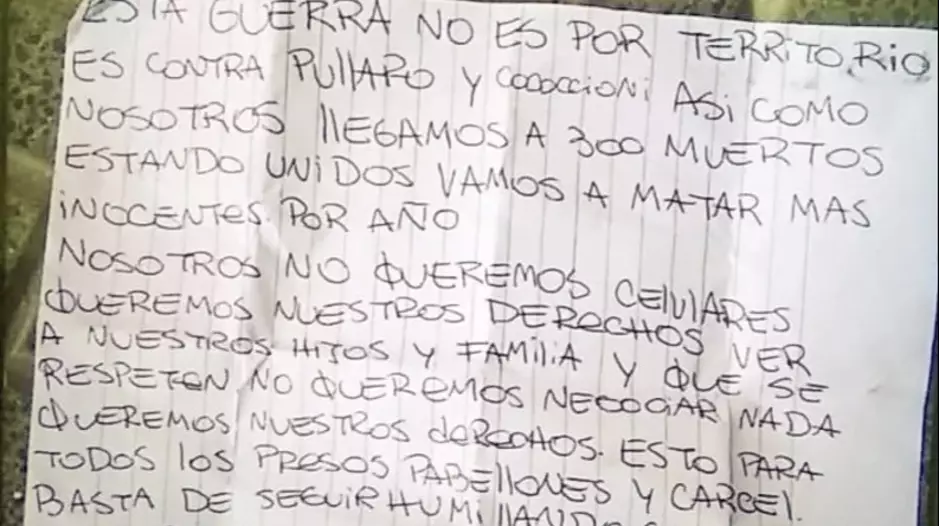 ESTA GUERRA NO ES POR TERRiTORiO
ES CONTRA PUllARO Y COCOCCiONi ASi COMO
NOSOTROS llEGAMOS A 300 MUERTOS
ESTANDO UNiDOS VAMOS A MATAR MAS
iNOCENTeS. POR AÑO
NOSOTROS NO QUEREMOS CElUlARES
QUEREMOS NUESTROS DERECHOS VER
A NUESTROS HiJOS Y FAMiliA Y QUE SE
RESPETEN NO QUEREMOS NEGOCiAR NADA
QUEREMOS NUESTROS deRECHOS. ESTO PARA
TODOS lOS PRESOS PABEllONES Y CARCEl.
BASTA DE SEGUiR HUMillANDO